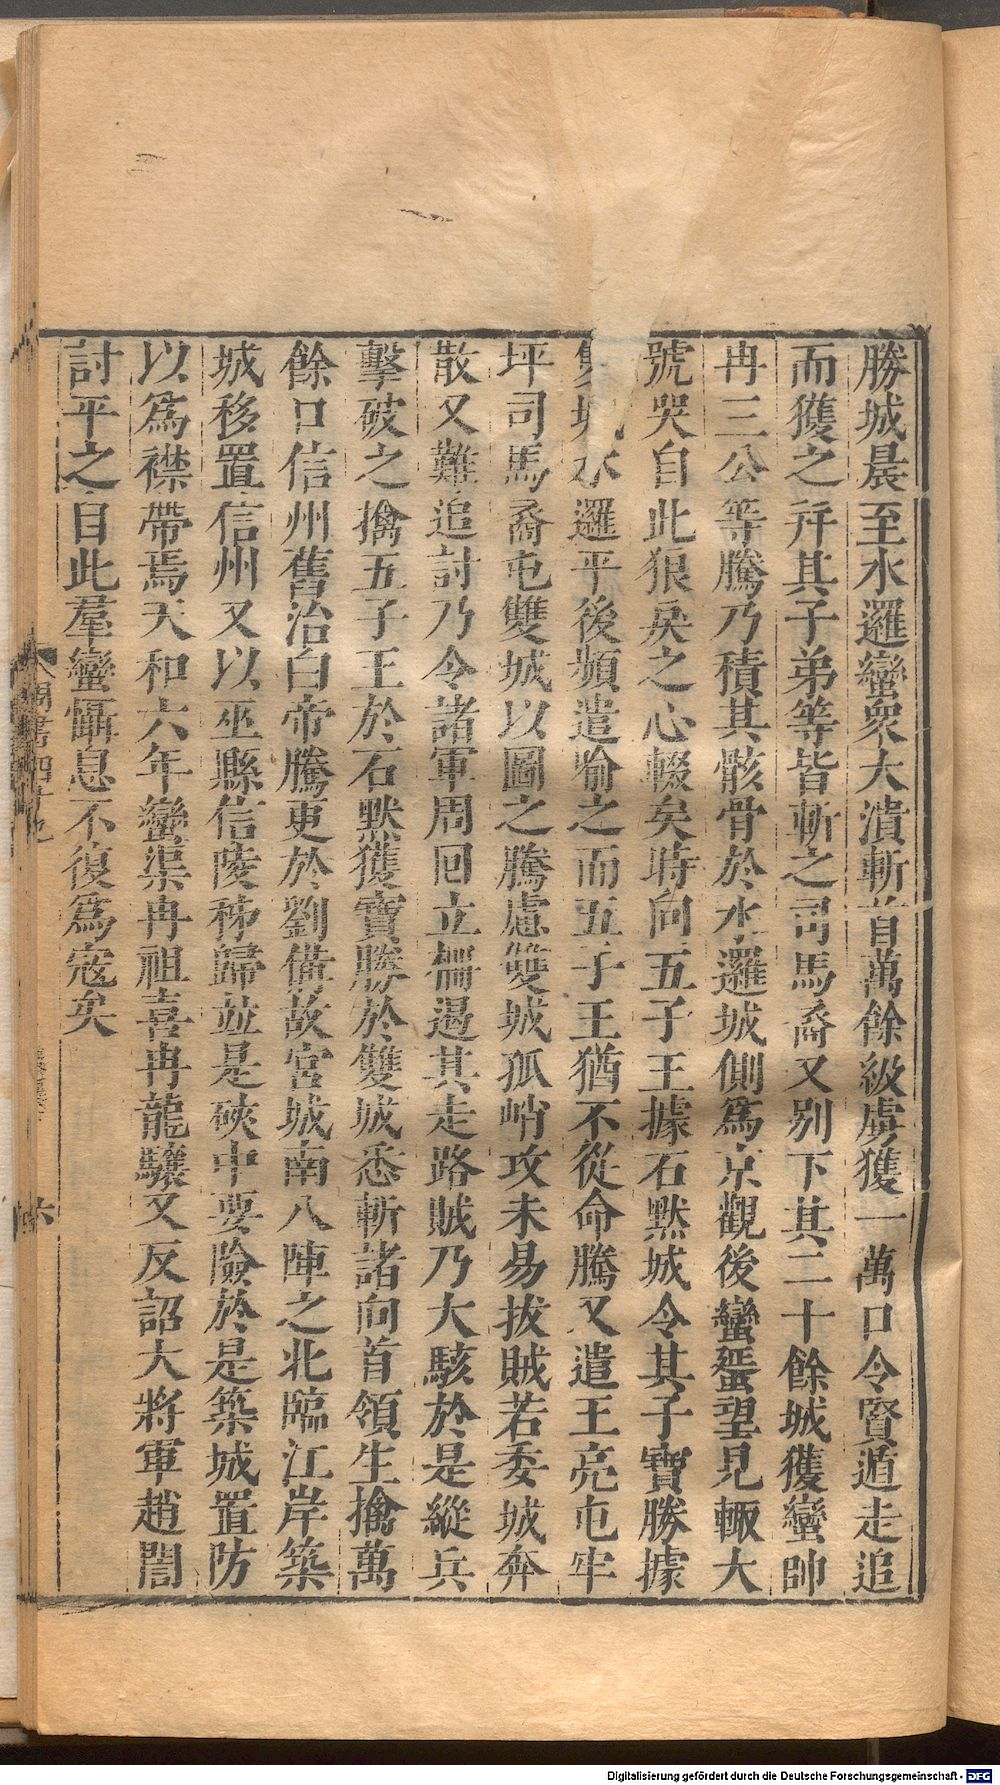 勝城晨至水邏蠻衆大潰斬首萬餘級虜獲一萬口令賢遁走追
而獲之并其子弟等皆斬之司馬裔又别下其二十餘城獲蠻帥
冉三公等騰乃積其骸骨於水邏城側爲京觀後蠻蜑望見輙大
號哭自此狼戾之心輟矣時向五子王據石默城令其子寶勝據
雙城水邏平後頻遣喻之而五子王猶不從命騰又遣王亮屯牢
坪司馬裔屯雙城以圖之騰慮雙城孤峭攻未易拔賊若委城奔
散又難追討乃令諸軍周回立柵遏其走路賊乃大駭於是縱兵
擊破之擒五子王於石默獲寶勝於雙城悉斬諸向首領生擒萬
餘口信州舊治白帝騰更於劉備故宮城南八陣之北臨江岸築
城移置信州又以巫縣信陵秭歸竝是硤中要險於是築城置防
以爲襟帶焉天和六年蠻渠冉祖喜冉龍驤又反詔大將軍趙誾
討平之自此羣蠻懾息不復爲寇矣
周書四十九
六
Digitalisierung gefördert durch die Deutsche Forschungsgemeinschaft - DFG